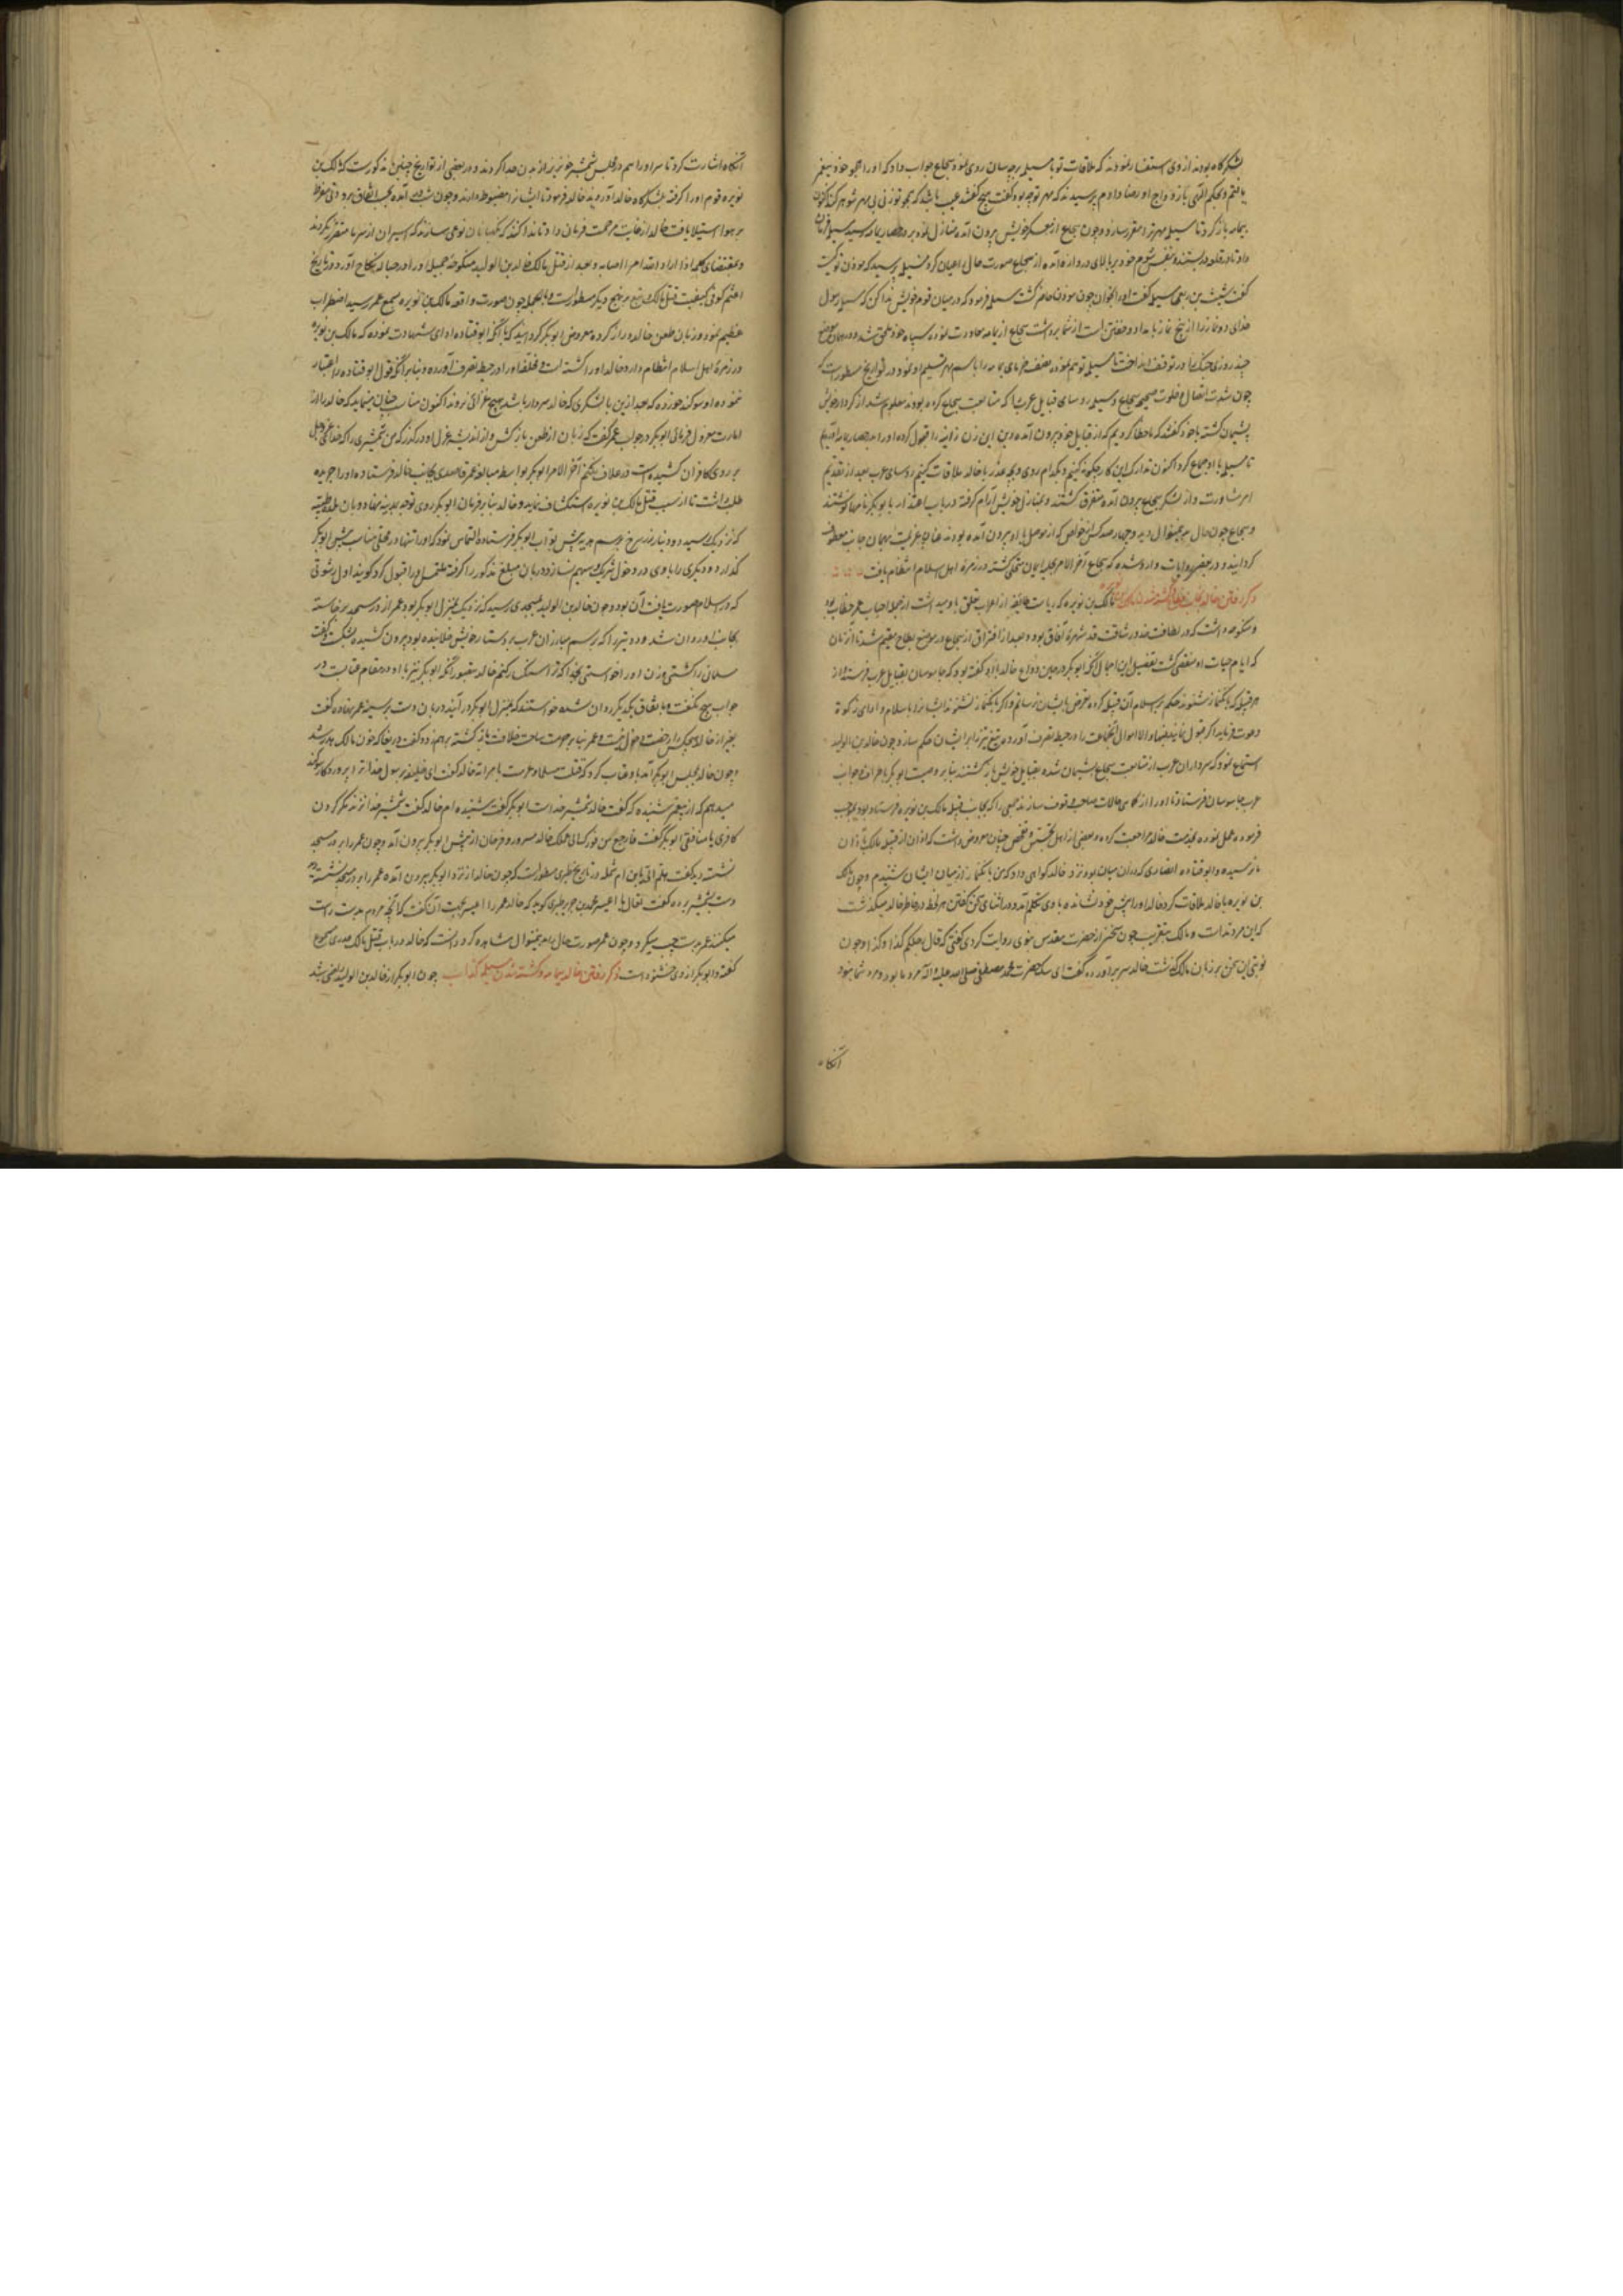 لشکرگاه بودند از وی استفسار نمودند که ملاقات تو با مسیلمه بر چه سان روی نمود سجاح جواب داد که او را همچو خود پیغمبر
یافتم و بحکم الهی بازدواج او رضا دادم پرسیدند که مهر تو چه بود گفت هیچ گفتند عیب باشد که همچو تو زنی بی مهر شوهر کند اکنون
باز گرد تا مسیلمه مهر ترا مقرر سازد و چون سجاح از معسکر خویش بیرون آمده منازل نموده بر در حصار یمامه رسید مسیلمه فرمان
داد تا در قلعه در بستند و بنفس شوم خود بر بالای دروازه آمده از سجاح صورت حال اعیان کرد مسیلمه پرسید که موذن تو کیست
گفت شبث بن ربعی مسیلمه گفت او را بخوان چون موذن حاضر گشت مسیلمه فرمود که در میان قوم خویش ندا کن که مسیلمه رسول
خدای دو نماز را از پنج نماز بامداد و خفتن است از شما برداشت سجاح از یمامه معاودت نموده بسپاه خود ملحق شد و در همان موضع
چند روزی جنگ را در توقف انداخت تا مسیلمه نصف خرمای یمامه را باسم مهر تسلیم او نمود و در تواریخ مسطورست که
چون شدت اتصال و خلوت صحیح سجاح و مسیلمه روسای قبایل عرب را که متابعت سجاح کرده بودند معلوم شد از کردار خویش
پشیمان گشته با خود گفتند که ما خطا کردیم که از قبایل خود بیرون آمده دین این زن زانیه را قبول کرده او را بدر حصار یمامه آوردیم
تا مسیلمه با او جماع کرد اکنون تدارک این کار چگونه کنیم و بکدام روی و بچه عذر با خالد ملاقات کنیم روسای عرب بعد از تقدیم
امر مشاورت و از لشکر سجاح بیرون آمده متفرق گشتند و بمنازل خویش آرام گرفته در باب اعتذار با بوبکر نامها نوشتند
و سجاح چون حال بدینمنوال دید و چهارصد کس از خواص که از موصل با او بیرون آمده بودند عنان عزیمت بهمان جانب معطوف
گردانید و در بعضی روایات وارد شده که سجاح آخر الامر بحلیه ایمان متحلی گشته در زمره اهل اسلام انتظام یافت
ذکر رفتن خالد بجانب بطاح و کشته شدن مالک بن نویره مالک بن نویره که ریاست طایفه از اعراب تعلق باو میداشت از جمله احباب عمر خطاب بود
و منکوحه داشت که در لطافت خد و رشاقت قد شهره آفاق بود و بعد از افتراق از سجاح در موضع بطاح مقیم شد تا آن زمان
که ایام حیات او منقضی گشت تفصیل این اجمال آنکه ابوبکر در حین وداع خالد با او گفته بود که جاسوسان بقبایل عرب فرستد از
هر قبیله که بانگ نماز شنوند حکم بر اسلام آن قبیله کرده تعرض بایشان نرسانم و اگر بانگ نماز نشنوند ایشانرا باسلام و ادای زکوة
دعوت فرماید اگر قبول نمایند فبها و الا اموال آنجماعت را در حیطه تصرف آورده تیغ تیز را بر ایشان حکم سازد و چون خالد بن الولید
استماع نمود که سرداران عرب از متابعت سجاح پشیمان شده بقبایل خویش باز گشتند بنا بر وصیت ابوبکر باطراف و جوانب
عرب جاسوسان فرستاد تا او را از کماهی حالات صاحب وقوف سازند جمعی را که بجانب قبیله مالک بن نویره فرستاده بود بموجب
فرموده عمل نموده بخدمت خالد مراجعت کرده و بعضی از اهل تجسس و تفحص چنان معروض داشت که اذان از قبیله مالک باذان
ما نرسید و ابوقتاده انصاری که در آن میان بود نزد خالد گواهی داد که من بانگ نماز از میان ایشان شنیدم و چون مالک
بن نویره با خالد ملاقات کرد خالد او را پیش خود نشانده با وی بتکلم آمد و در اثنای سخن گفتن هر لحظه در خاطر خالد میگذشت
که این مرد مدانست و مالک بتقریب چون سخنی از حضرت مقدس نبوی روایت کردی گفتی که قال رجلکم کذا و کذا و چون
نوبتی این سخن بر زبان مالک گذشت خالد سر بر آورده گفت ای سگ حضرت محمد مصطفی صلی الله علیه و آله مرد ما بود و مرد شما نبود
آنگاه
آنگاه اشارت کرد تا سر او را هم در مجلس بشمشیر خونریز از بدن جدا کردند و در بعضی از تواریخ چنین مذکورست که مالک بن
نویره و قوم او را گرفته بلشکرگاه خالد آوردند خالد فرمود تا ایشانرا مضبوط دارند و چون شب در آمد بحسب اتفاق برودتی مفرط
بر هوا استیلا یافت خالد از غایت مرحمت فرمان داد تا ندا کنند که نگهبانان نوعی سازند که اسیران از سرما متضرر نگردند
و بمقتضای کلمه اذا اراد الله امرا اصابه و بعد از قتل مالک خالد بن الولید منکوحه جمیله او را در حباله نکاح آورد و در تاریخ
اعثم کوفی کیفیت قتل مالک بن نویره بر نهج دیگر مسطورست و بالجمله چون صورت واقعه مالک بن نویره بسمع عمر رسید اضطراب
عظیم نمود و زبان طعن خالد دراز کرده معروض ابوبکر گردانید که با آنکه ابوقتاده ادای شهادت نموده که مالک بن نویره
در زمره اهل اسلام انتظام دارد خالد او را کشته است و مخلفه او را در حیطه تصرف آورده و بنا بر آنکه قول ابوقتاده را اعتبار
ننموده او سوگند خورده که بعد ازین با لشکری که خالد سردار باشد بهیچ غزائی نرود اکنون مناسب چنان مینماید که خالد را از
امارت معزول فرمائی ابوبکر در جواب عمر گفت که زبان از طعن باز کش و از اندیشه عزل او در گذر که من شمشیری را که خدای عز و جل
بر روی کافران کشیده است در غلاف نکنم آخر الامر ابوبکر بواسطه مبالغه عمر قاصدی بجانب خالد فرستاده او را جریده
طلب داشت تا از سبب قتل مالک بن نویره استکشاف نماید و خالد بنا بر فرمان ابوبکر روی توجه بمدینه نهاد و بان بلده طیبه
که نزدیک رسید دو دینار زر سرخ برسم هدیه پیش بواب ابوبکر فرستاده التماس نمود که او را تنها در محلی مناسب پیش ابوبکر
گذارد و دیگری را با وی در دخول شریک و سهیم نسازد دربان مبلغ مذکور را گرفته ملتمس او را قبول کرد گویند اول رشوتی
که در اسلام صورت یافت آن بود و چون خالد بن الولید بمسجدی رسید که نزدیک بمنزل ابوبکر بود عمر از در مسجد برخاسته
بجانب او روان شد و دو تیر را که برسم مبارزان عرب بر دستار خویش خلانیده بود بیرون کشیده بشکست و گفت
مسلمانی را کشتی و زن او را خواستی بخدا که ترا سنگسار کنم خالد بتصور آنکه ابوبکر نیز با او در مقام عتابست در
جواب هیچ نگفت و باتفاق یکدیگر روان شده خواستند که بمنزل ابوبکر در آیند دربان دست بر سینه عمر نهاده گفت
بغیر از خالد هیچکس را رخصت دخول نیست و عمر بنا بر حرمت ساحت خلافت باز گشته بر هم زده گفت دریغا که خون مالک هدر شد
و چون خالد بمجلس ابوبکر آمد با وی عتاب کرد که قتلت مسلما و عرست بامراته خالد گفت ای خلیفه رسول خدا ترا بپروردگار سوگند
میدهم که از پیغمبر شنیده که گفت خالد شمشیر خداست ابوبکر گفت شنیده ام خالد گفت شمشیر خدا نزند مگر گردن
کافری یا منافقی ابوبکر گفت فارجع من فورک الی عملک خالد مسرور و فرحان از پیش ابوبکر بیرون آمد و چون عمر را بر در مسجد
نشسته دید گفت هلم الی یا بن ام شمله در تاریخ طبری مسطورست که چون خالد از نزد ابوبکر بیرون آمد عمر را بر در مسجد نشسته دید
دست بشمشیر برده گفت تعال یا اعیسر محمد بن جریر طبری گوید که خالد عمر را اعیسر بجهت آن گفت که آنچه مردم بدست راست
میکنند عمر بدست چپ میکرد و چون عمر صورت حال را بدینمنوال مشاهده کرد دانست که خالد در باب قتل مالک عذری مسموع
گفته و ابوبکر از وی خشنود است ذکر رفتن خالد بیمامه و کشته شدن مسیلمه کذاب چون ابوبکر از خالد بن الولید راضی شد